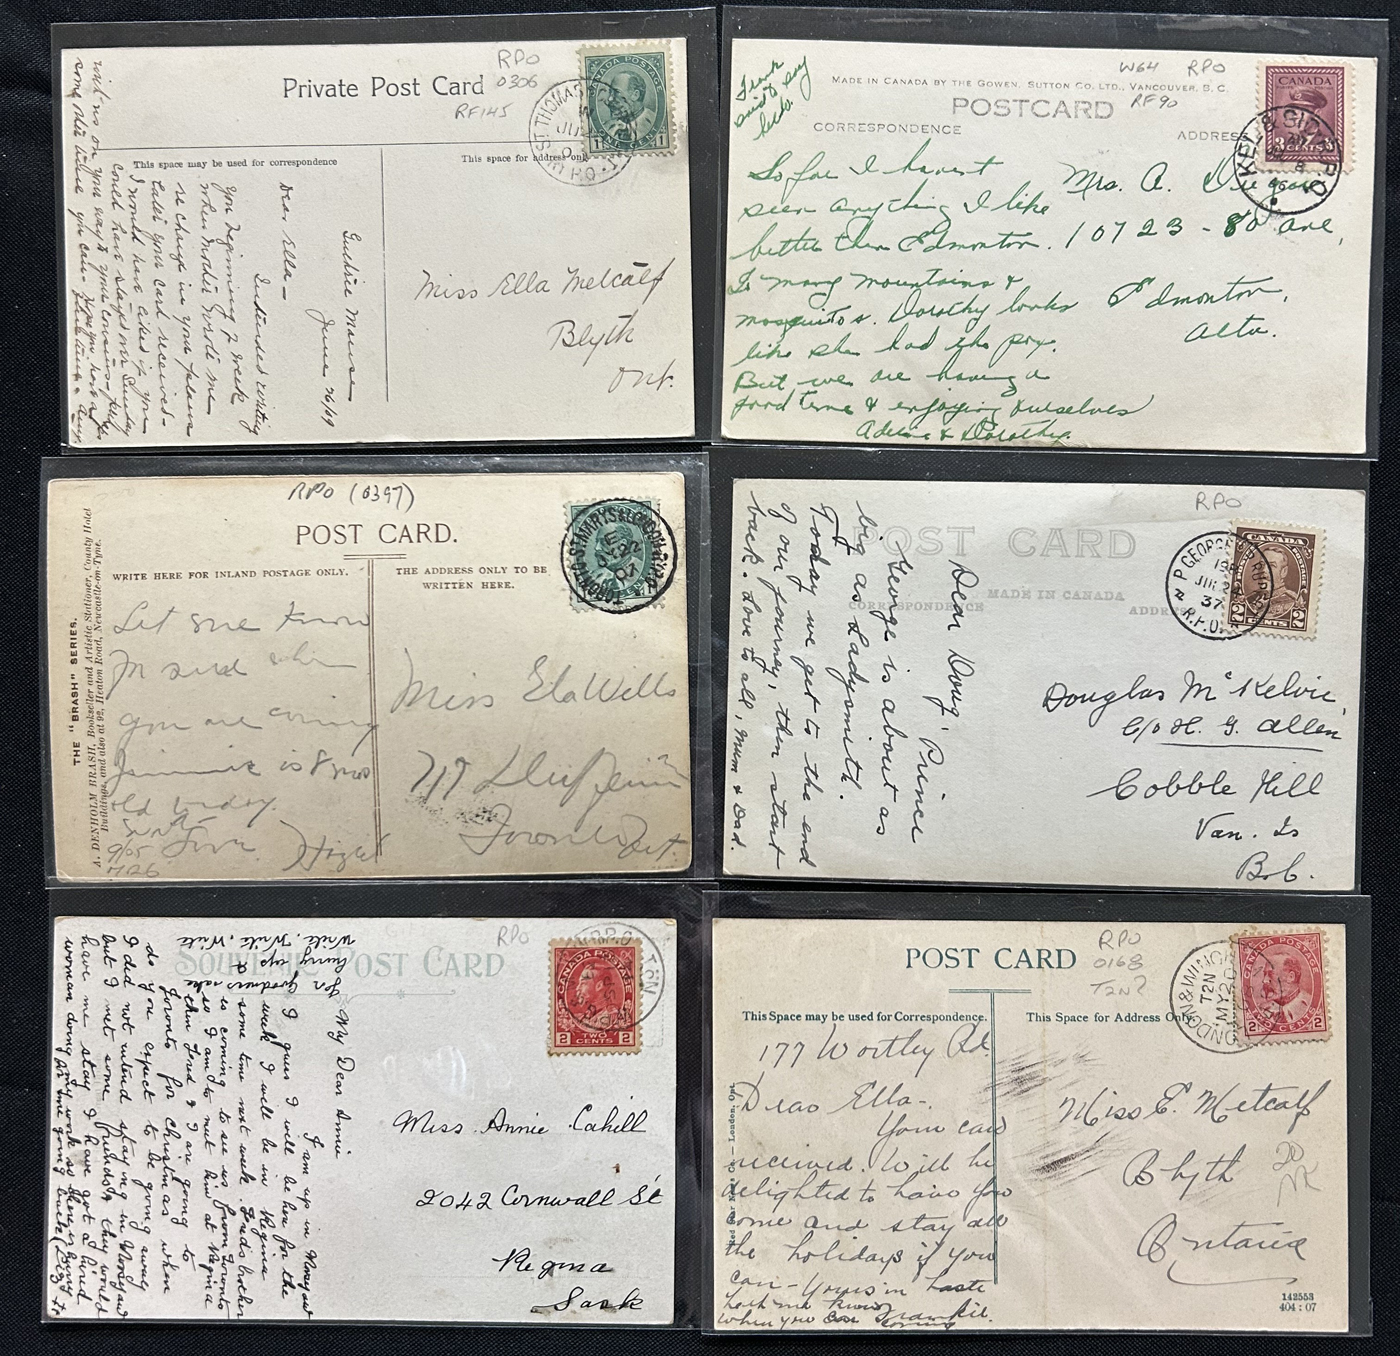 RPO
Private Post Card
0306
RF145
CANADA POSTAGE
ST. THOMAS
R.P.O.
This space may be used for correspondence
This space for address only
Guthrie Manse
June 26/09
Dear Ella—
Intended writing
you beginning of week
when Mother wrote me
re change in your plans
Later your card received—
I would have asked if you
could have stayed over Sunday
with us on your way to your cousins
some other time you can.
Miss Ella Metcalf
Blyth
Ont.
W64 RPO
RF90
MADE IN CANADA BY THE GOWEN, SUTTON CO. LTD., VANCOUVER, B. C.
POSTCARD
CORRESPONDENCE
ADDRESS
CANADA
3 CENTS
R.P.O.
So far I havent
seen anything I like
better than Edmonton.
To many mountains &
mosquitos. Dorothy looks
like she had the pox.
But we are having a
good time & enjoying ourselves
& Dorothy.
Mrs. A.
10723 - 80 ave,
Edmonton,
Alta.
RPO (0397)
POST CARD.
WRITE HERE FOR INLAND POSTAGE ONLY.
THE ADDRESS ONLY TO BE
WRITTEN HERE.
THE "BRASH" SERIES.
A. DENHOLM BRASH, Bookseller and Artistic Stationer, County Hotel
Buildings, and also at 92, Heaton Road, Newcastle-on-Tyne.
TORONTO ST. MARYS & LONDON R.P.O.
22
07
Let me know
when
you are coming
Jimmie is 8 mos
old today.
Love
Miss Ela Wills
717
Toronto
Ont.
RPO
POST CARD
CORRESPONDENCE
MADE IN CANADA
ADDRESS
CANADA
POSTAGE
2 CENTS 2
P. GEORGE & P. RUPERT
R.P.O.
37
Dear Doug
Prince
George is about as
big as Ladysmith.
Today we get to the end
of our journey, then start
back. Love to all, Mum & Dad.
Douglas McKelvie
C/o H. G. Allen
Cobble Hill
Van. Is
B.C.
RPO
SOUVENIR POST CARD
CANADA POSTAGE
2 TWO CENTS 2
for Goodness sake
hurry up &
Write, Write, Write
My Dear Annie
I am up in
I guess I will be here for the
week I will be in Regina
some time next week. Freds brother
is coming to see us from Toronto
so I am to meet him at Regina
then Fred & I are going to
Toronto for Christmas when
do you expect to be going away
I did not intend staying in
but I met some friends & they would
have me stay I have got a hired
woman doing my work so
Miss Annie Cahill
2042 Cornwall St
Regina
Sask
RPO
0168
T2N?
POST CARD
This Space may be used for Correspondence.
This Space for Address Only
LONDON & WINGHAM
T2N
MY 20
CANADA POSTAGE
2 TWO CENTS 2
177 Wortley Rd.
Dear Ella—
Your card
received. Will be
delighted to have you
come and stay all
the holidays if you
can— Yours in haste
let me know
when you are coming
Frankie.
Miss E. Metcalf
Blyth
Ontario
20
142553
404 : 07